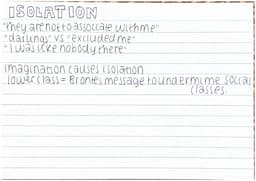 ISOLATION
"They are not to associate with me"
"darlings" vs "excluded me"
"I was like nobody there"
Imagination causes isolation
lower class = Brontes message to undermime social
classes.